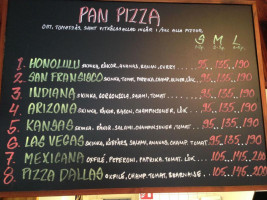 PAN PIZZA
OST, TOMATSÅS, SAMT VITKÅLSSALLAD INGÅR I ALLA PIZZOR.
S M L
1. HONOLULU SKINKA, RÄKOR, ANANAS, BANAN, CURRY... 95, 135, 190
2. SAN FRANSISCO SKINKA, TOMAT, PAPRIKA, CHAMP, OLIVER, LÖK 95, 135, 190
3. INDIANA SKINKA, GORGONZOLA, SPENAT, TOMAT. 95, 135, 190
4. ARIZONA SKINKA, RÄKOR, BACON, CHAMPINJONER, LÖK.. 95, 135, 190
5. KANSAS SKINKA, RÄKOR, SALAMI, CHAMPINJONER, TOMAT.. 95, 135, 190
6. LAS VEGAS SKINKA, KÖTTFÄRS, SALAMI, ANANAS, CHAMP, TOMAT. 95, 135, 190
7. MEXICANA OXFILÉ, PEPERONI, PAPRIKA, TOMAT, LÖK... 105, 145, 200
8. PIZZA DALLAS OXFILÉ, CHAMP, TOMAT, BEARNAISE 105, 145, 200